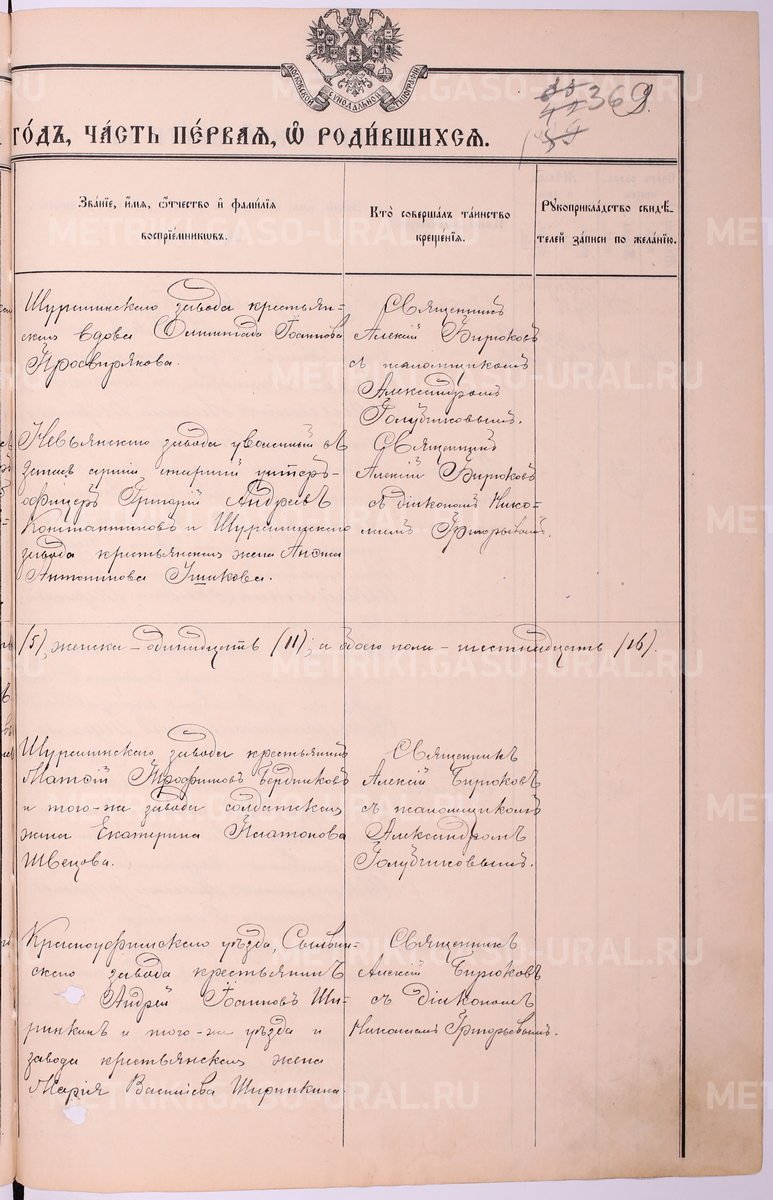 МОСКОВСКОЙ СѴНОДАЛЬНОЙ ТИПОГРАФІИ
369.
ГОДЪ, ЧАСТЬ ПЕРВАЯ, Ѽ РОДИВШИХСЯ.
Званіе, имя, ѿчество и фамилія
воспріемниковъ.
Кто совершалъ таинство
крещенія.
Рукоприкладство свидѣ-
телей записи по желанію.
Шуралинскаго завода крестьян-
ская вдова Олимпіада Іоаннова
Просвирякова.
Священникъ
Алексій Бирюковъ
съ псаломщикомъ
Александромъ
Голубчиковымъ.
Невьянскаго завода уволенный въ
запасъ арміи старшій унтеръ-
офицеръ Григорій Андреевъ
Константиновъ и Шуралинскаго
завода крестьянская жена Анна
Антонинова
Священникъ
Алексій Бирюковъ
съ діакономъ Нико-
лаемъ Григорьевымъ.
(5), женска – одинадцать (11); а обоего пола – шестнадцать (16).
Шуралинскаго завода крестьянинъ
Матѳій Трофимовъ Бердниковъ
и того-же завода солдатская
жена Екатерина Платонова
Швецова.
Священникъ
Алексій Бирюковъ
съ псаломщикомъ
Александромъ
Голубчиковымъ.
Красноуфимскаго уѣзда, Сылвин-
скаго завода крестьянинъ
Андрей Іоанновъ Ши-
ринкинъ и того-же уѣзда и
завода крестьянская жена
Марія Василіева Ширинкина.
Священникъ
Алексій Бирюковъ
съ діакономъ
Николаемъ Григорьевымъ.
METRIKI.GASO-URAL.RU